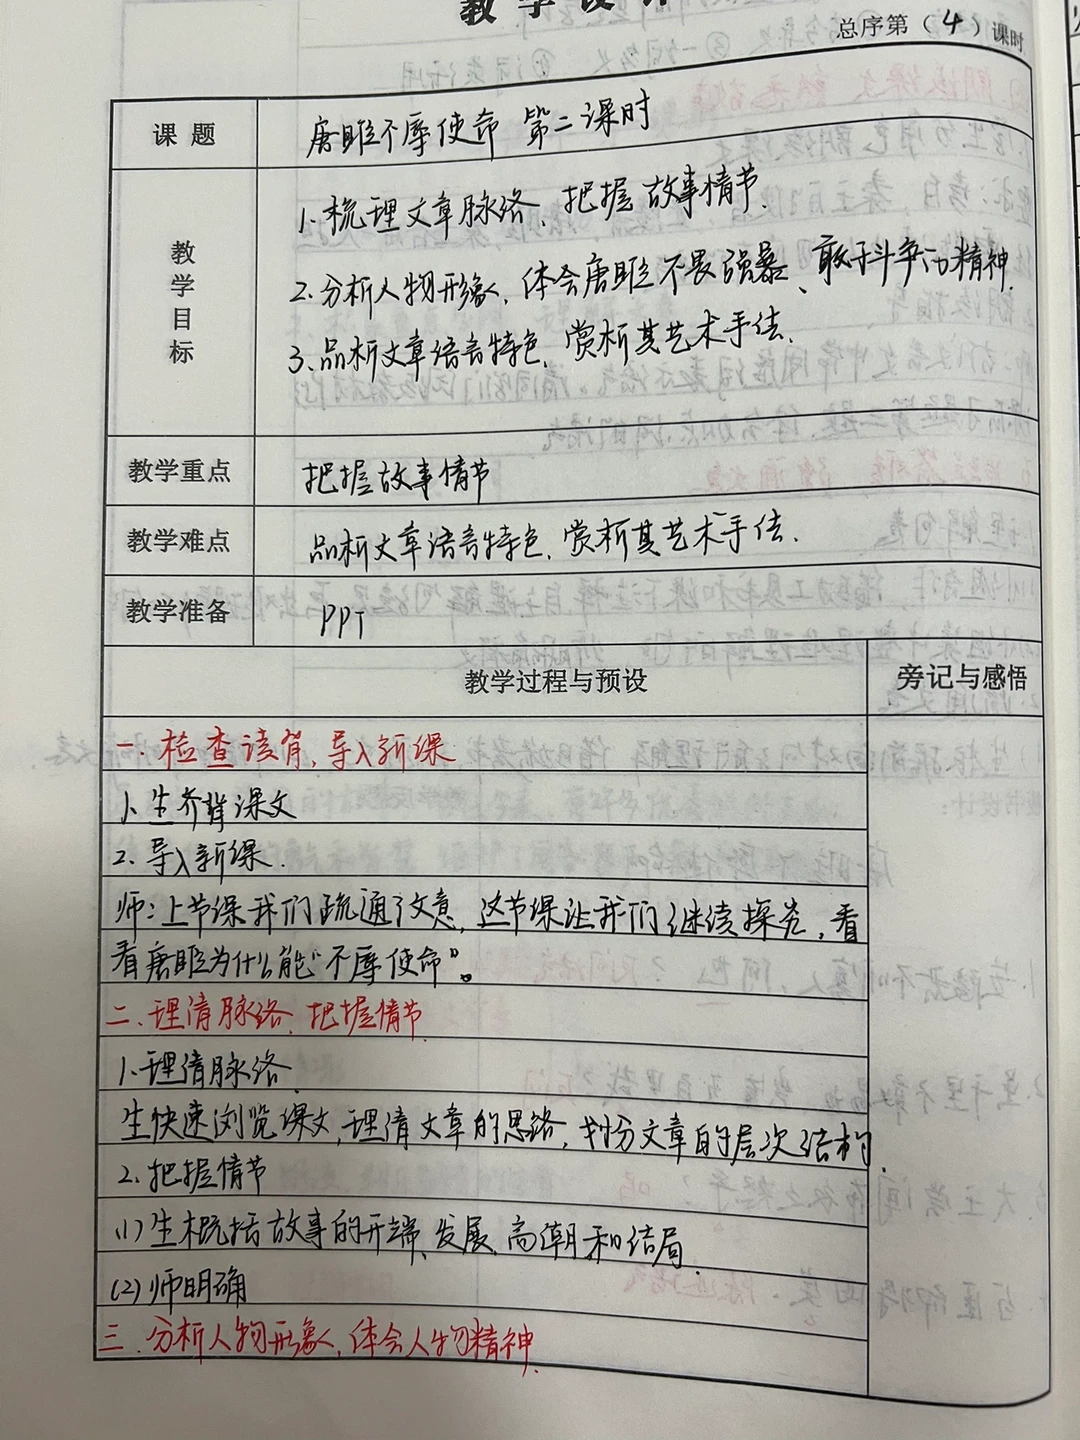 教学设计
总序第（4）课时
课题
唐雎不辱使命 第二课时
教学目标
1.梳理文章脉络、把握故事情节.
2.分析人物形象，体会唐雎不畏强暴、敢于斗争的精神.
3.品析文章语言特色，赏析其艺术手法.
教学重点
把握故事情节
教学难点
品析文章语言特色，赏析其艺术手法.
教学准备
PPT
教学过程与预设
旁记与感悟
一.检查读背，导入新课
1.生齐背课文
2.导入新课.
师：上节课我们疏通了文意，这节课让我们继续探究，看
看唐雎为什么能“不辱使命”。
二、理清脉络，把握情节
1.理清脉络
生快速浏览课文，理清文章的思路，划分文章的层次结构.
2.把握情节
(1)生概括故事的开端、发展、高潮和结局.
(2)师明确
三.分析人物形象，体会人物精神.